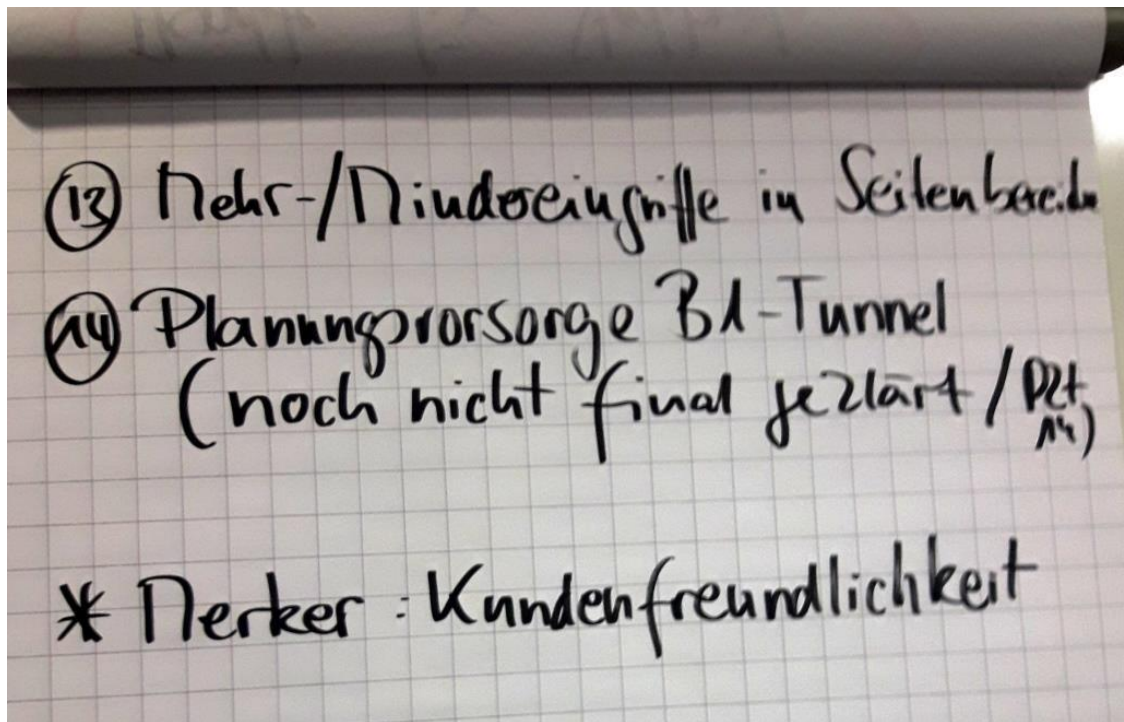 ⑬ Mehr-/Mindereingriffe in Seitenbereiche
⑭ Planungsvorsorge B1-Tunnel
(noch nicht final geklärt / Pkt.
14)
* Merker: Kundenfreundlichkeit